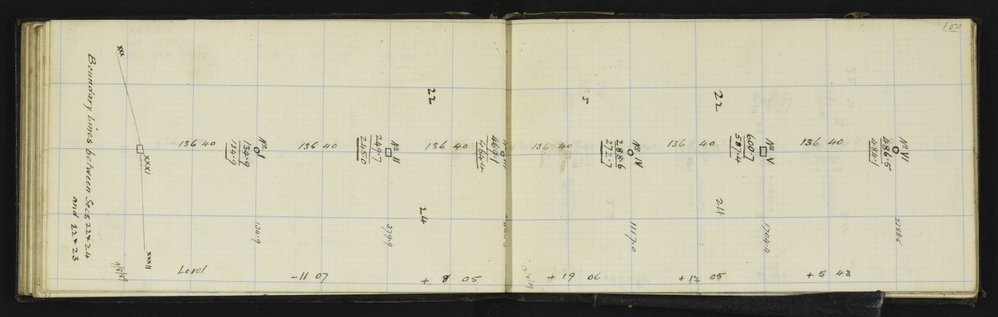 150
XXX
Boundary Lines between Secs 22 & 24
and 22 & 23
XXXI
XXXII
136 40
134.9
134.9
No I
134.9
136 40
2450
249.7
No II
379.9
22
24
136 40
464.4
469.1
136 40
272.7
288.6
No IV
1117.0
136 40
587.4
600.7
No V
1704.4
22
24
136 40
484.1
486.5
No VI
2188.5
Level
-11 07
+ 8 05
+ 19 06
+ 12 05
+ 5 43